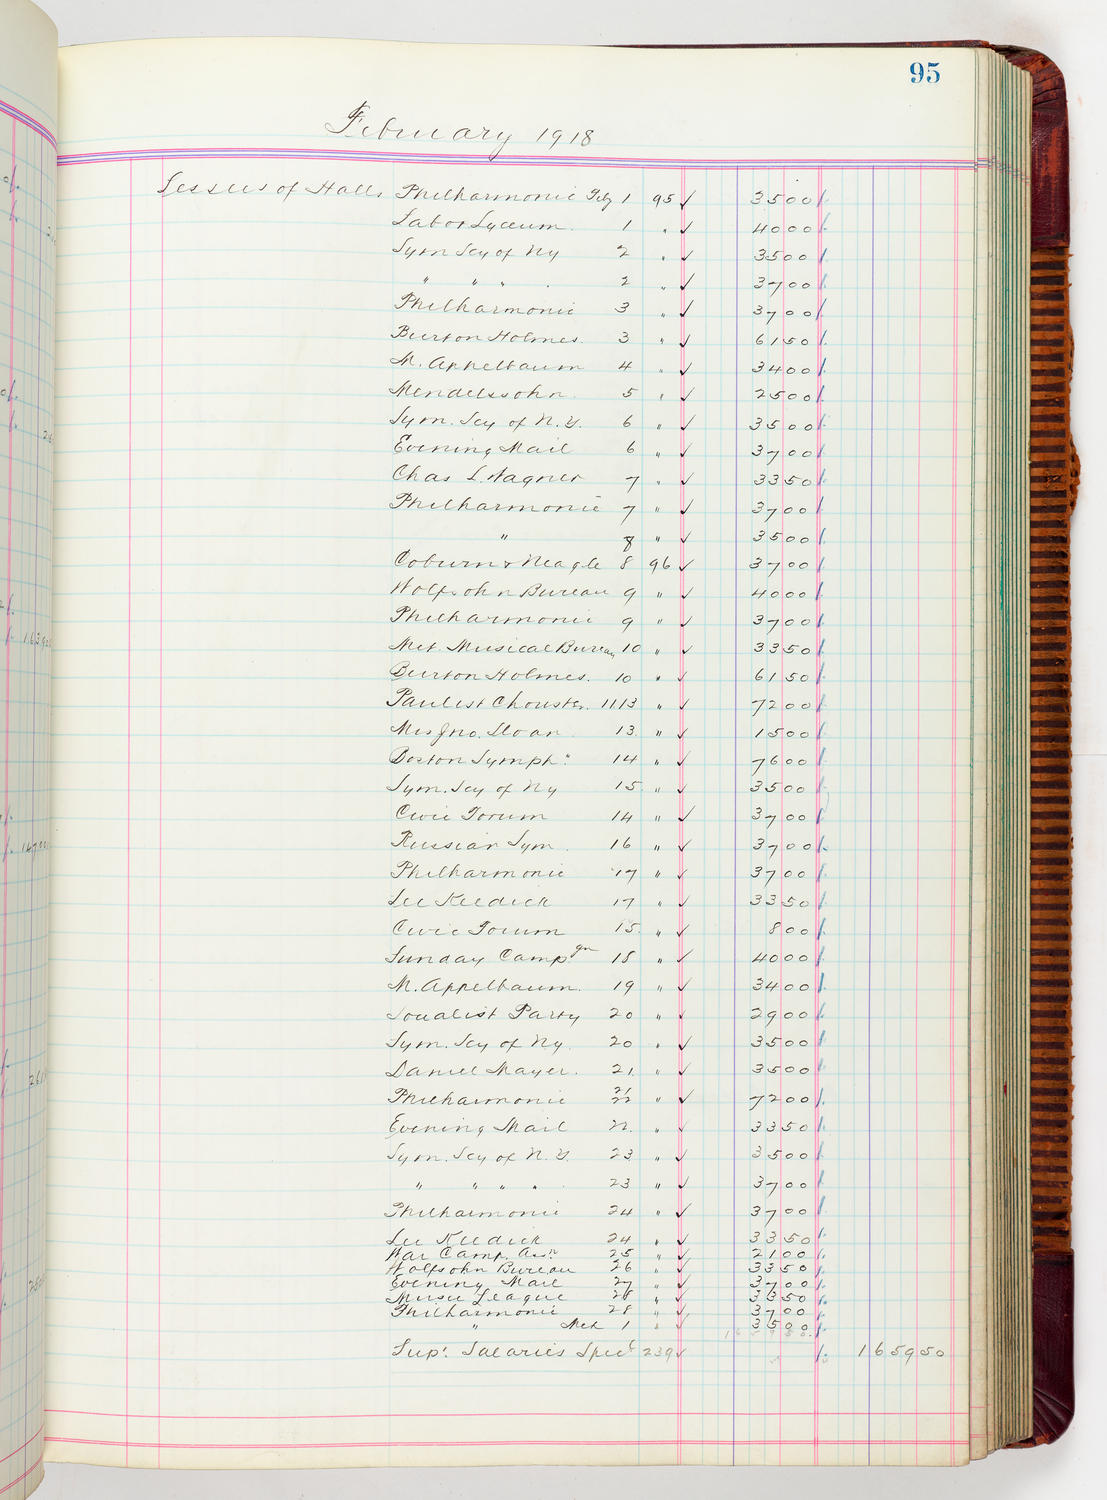 95
February 1918
Lessees of Halls Philharmonic Feby 1 95 ✓ 3500
Labor Lyceum 1 " ✓ 4000
Sym Scy of Ny 2 " ✓ 3500
" " " " 2 " ✓ 3700
Philharmonic 3 " ✓ 3700
Burton Holmes 3 " ✓ 6150
M. Appelbaum 4 " ✓ 3400
Mendelssohn 5 " ✓ 2500
Sym. Scy of N.Y. 6 " ✓ 3500
Evening Mail 6 " ✓ 3700
Chas L. Wagner 7 " ✓ 3350
Philharmonic 7 " ✓ 3700
" 8 " ✓ 3500
Coburn & Neagle 8 96 ✓ 3700
Wolfsohn Bureau 9 " ✓ 4000
Philharmonic 9 " ✓ 3700
Met. Musical Bureau 10 " ✓ 3350
Burton Holmes. 10 " ✓ 6150
Paulist Chouster. 11 13 " ✓ 7200
Mrs Jno. Sloan 13 " ✓ 1500
Boston Symph: 14 " ✓ 7600
Sym. Scy of Ny 15 " ✓ 3500
Civic Forum 14 " ✓ 3700
Russian Sym. 16 " ✓ 3700
Philharmonic 17 " ✓ 3700
Lee Keedick 17 " ✓ 3350
Civic Forum 15 " ✓ 800
Sunday Campgn 18 " ✓ 4000
M. Appelbaum. 19 " ✓ 3400
Socialist Party 20 " ✓ 2900
Sym. Scy of Ny. 20 " ✓ 3500
Daniel Mayer. 21. " ✓ 3500
Philharmonic 21/22 " ✓ 7200
Evening Mail 22. " ✓ 3350
Sym. Scy of N.Y. 23 " ✓ 3500
" " " " 23 " ✓ 3700
Philharmonic 24 " ✓ 3700
Lee Keedick 24 " ✓ 3350
War Camp. Assn 25 " ✓ 2100
Wolfsohn Bureau 26 " ✓ 3350
Evening Mail 27 " ✓ 3700
Music League 28 " ✓ 3350
Philharmonic 28 " ✓ 3700
" Mch 1 " ✓ 3500
Sup. Salaries Specl 239 ✓ 165950